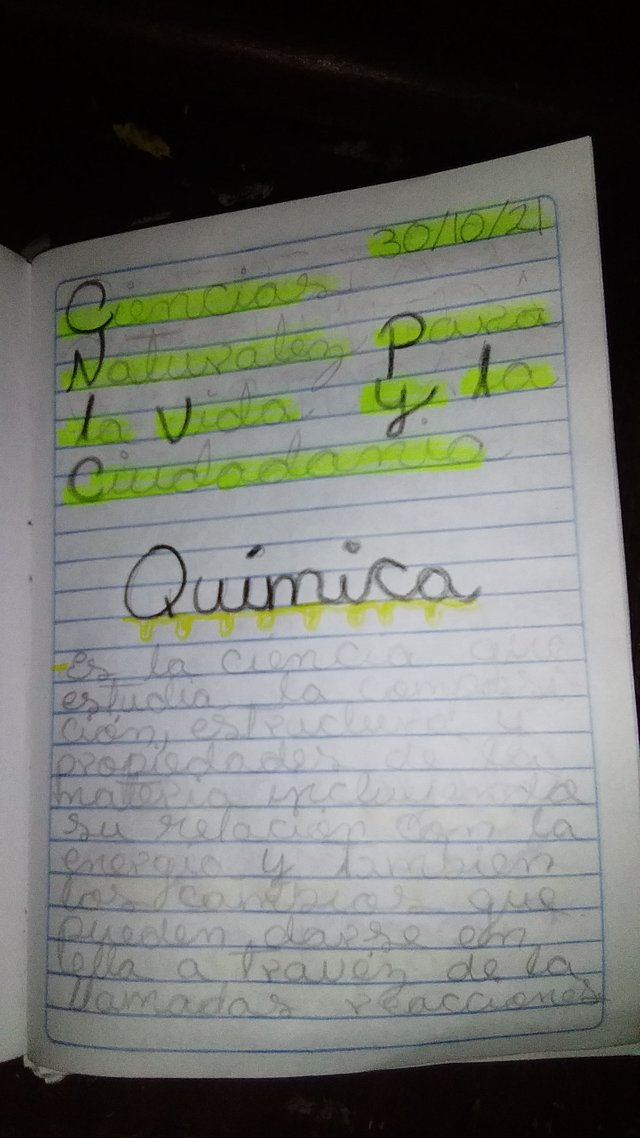 30/10/21
Ciencias
Naturales Para
la Vida y la
Ciudadanía
Química
Es la ciencia que
estudia la composi
ción, estructura y
propiedades de la
materia incluyendo
su relación con la
energía y tambien
los cambios que
pueden darse en
ella a través de la
llamadas reacciones